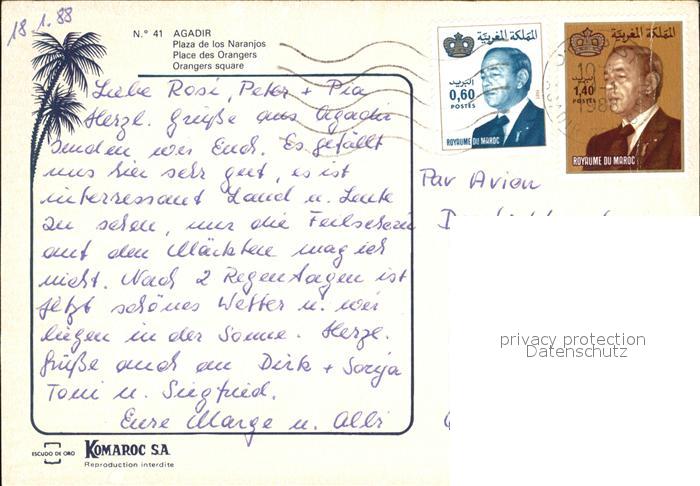 18.1.88
N.° 41 AGADIR
Plaza de los Naranjos
Place des Orangers
Orangers square
Liebe Rosi, Peter + Pia
Herzl. Grüße aus Agadir
senden wir Euch. Es gefällt
uns hier sehr gut, es ist
interressant Land u. Leute
zu sehen, nur die Feilscherei
auf den Märkten mag ich
nicht. Nach 2 Regentagen ist
jetzt schönes Wetter u. wir
liegen in der Sonne. Herzl.
Grüße auch an Dirk + Sonja
Toni u. Siegfried.
Eure Marge u. Albi
ESCUDO DE ORO
KOMAROC S.A.
Reproduction interdite
المملكة المغربية
البريد
0,60
POSTES
ROYAUME DU MAROC
المملكة المغربية
البريد
1,40
POSTES
ROYAUME DU MAROC
Par Avion
privacy protection
Datenschutz